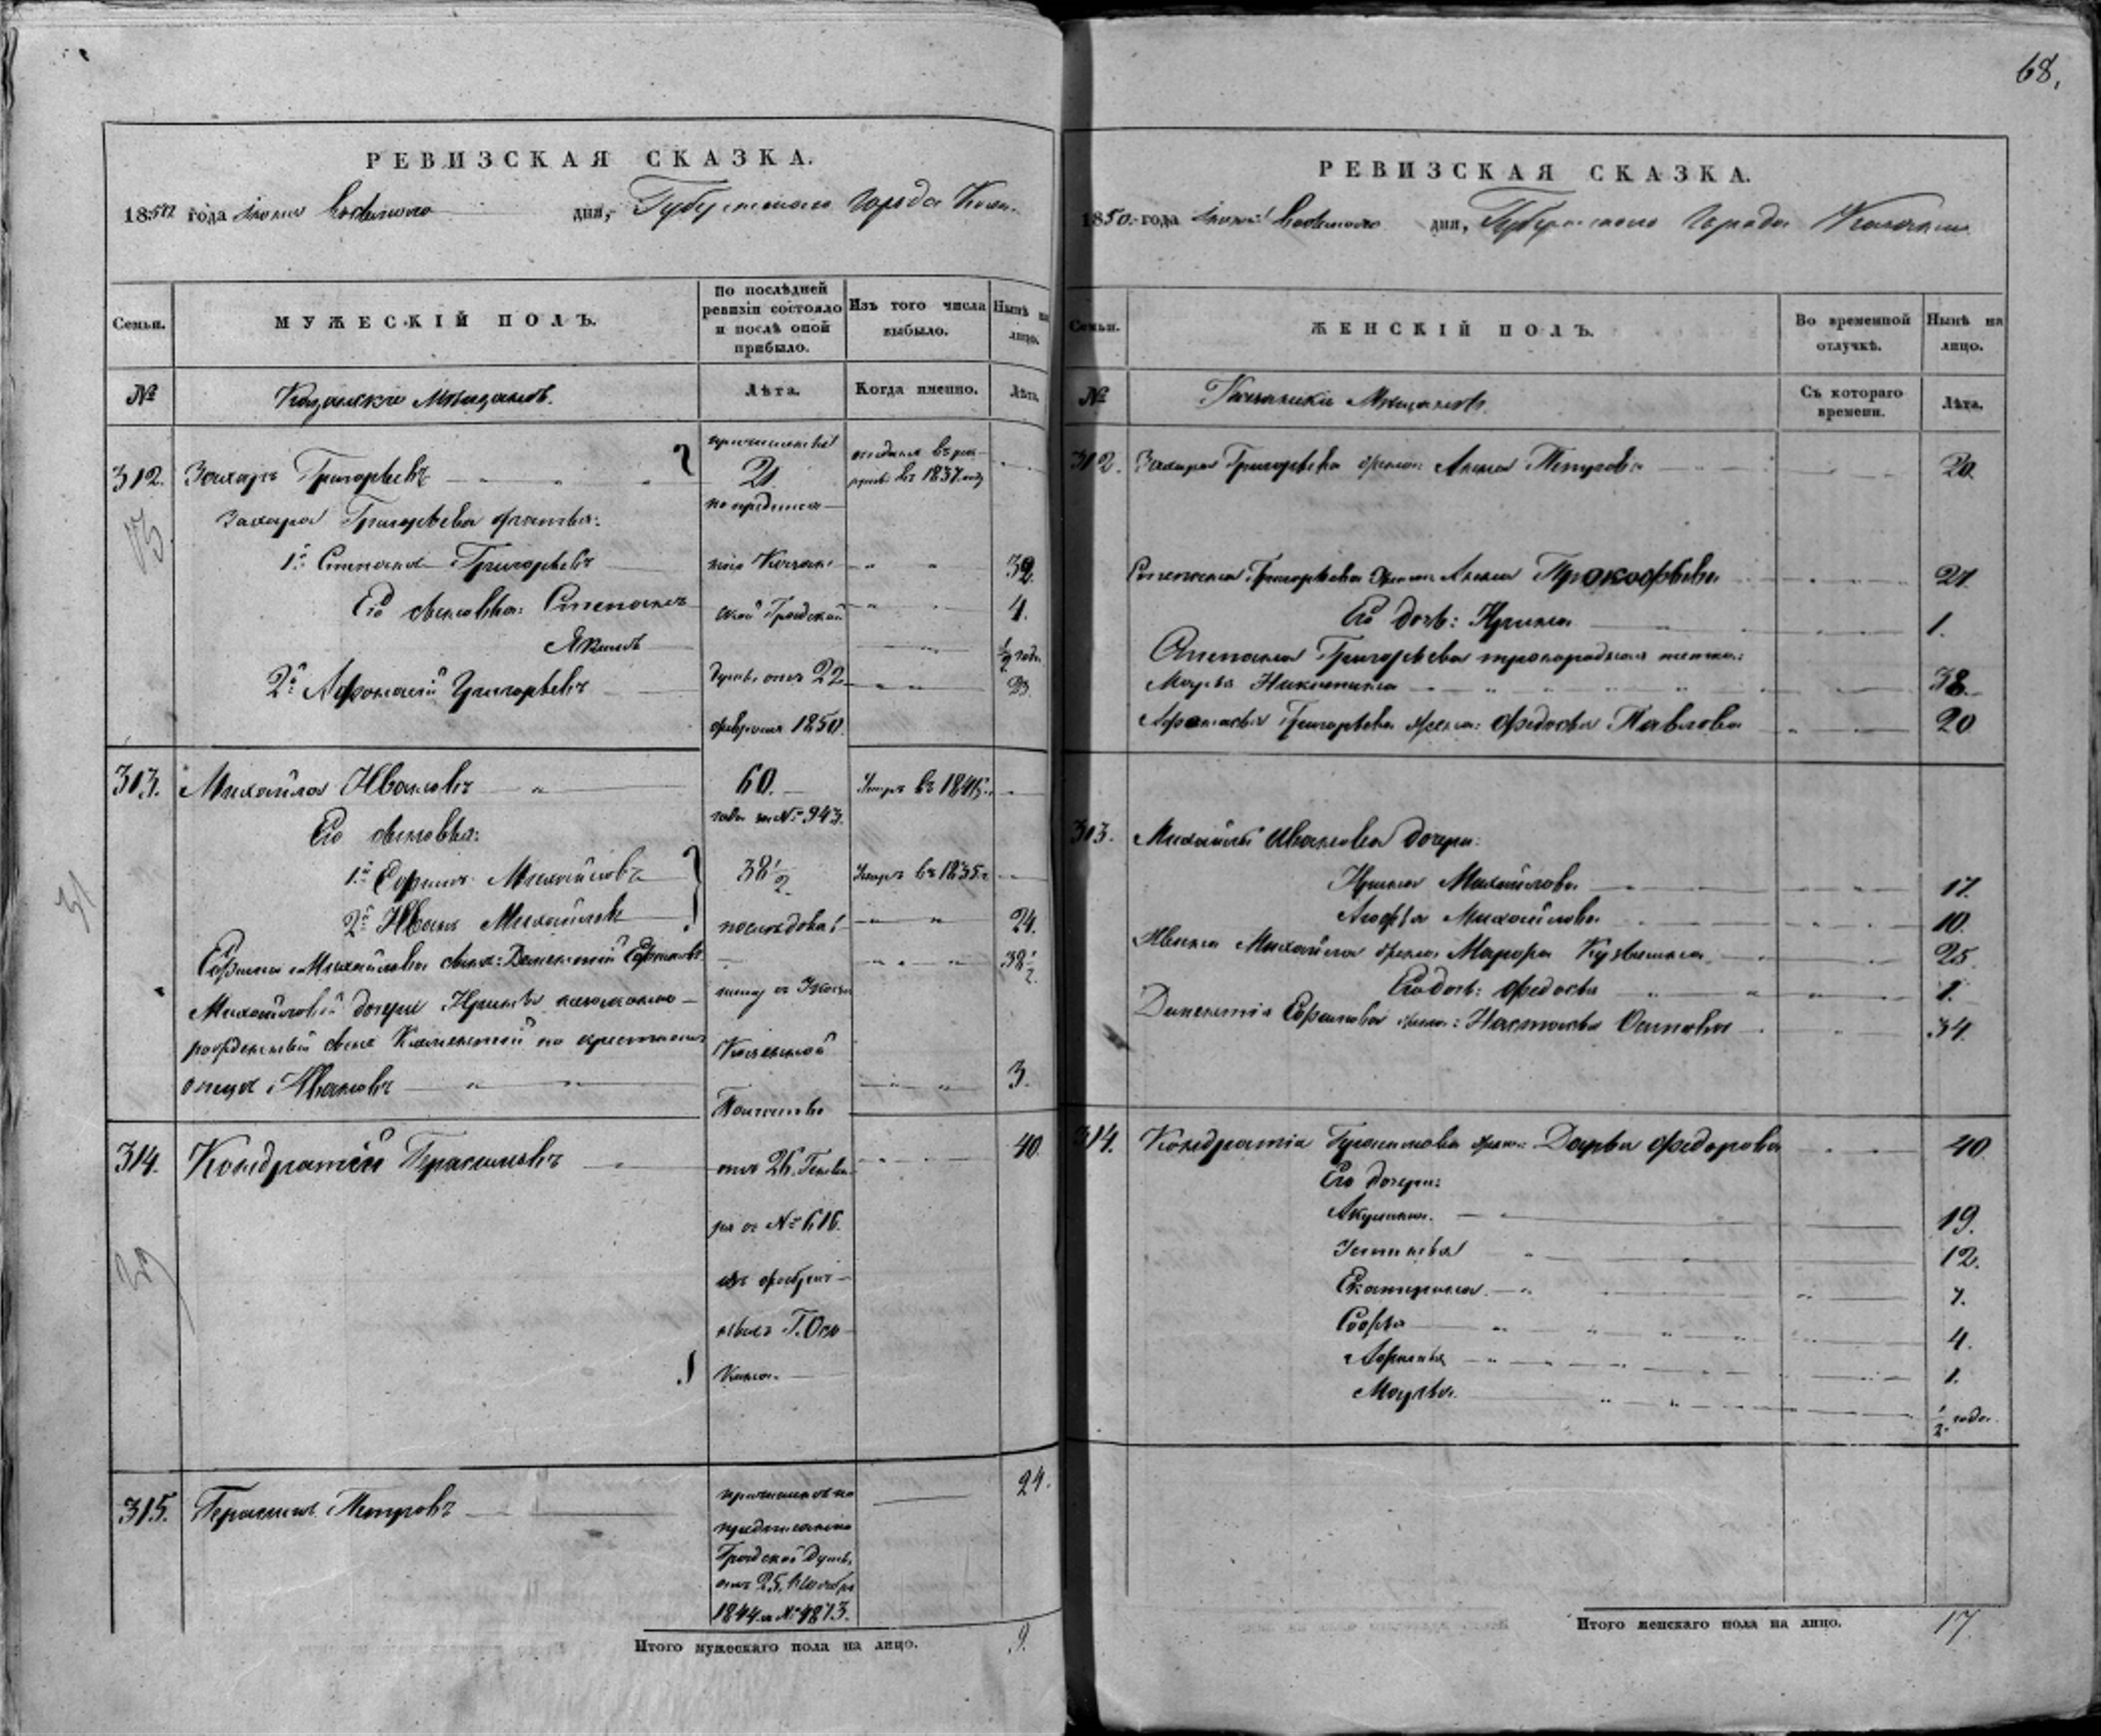 РЕВИЗСКАЯ СКАЗКА.
1850 года Июня восьмого дня, Губернского Города Каза-
Семьи.
МУЖЕСКІЙ ПОЛЪ.
По послѣдней ревизіи состояло и послѣ оной прибыло.
Изъ того числа выбыло.
Нынѣ на лицо.
№
Казанскіе Мѣщанъ.
Лѣта.
Когда именно.
Лѣта.
312. Захаръ Григорьевъ 21 отданъ въ рек- рутъ въ 1837 году
Захара Григорьева братья: по предписа-
1й Степанъ Григорьевъ нію Казан- 32.
Его сыновья: Степанъ ской Градской 4.
Якимъ 1/2 года
2й Афонасій Григорьевъ Думы отъ 22 23
февраля 1850
313. Михайла Ивановъ 60. Умеръ въ
Его сыновья: года за № 943.
1й Ефимъ Михайловъ 38 1/2 Умеръ въ 1835 г
2й Иванъ Михайловъ последова- 24.
Ефима Михайлова сынъ: Дементій Ефимовъ 38 1/2
Михайловой дочери Ирины незаконно-
рожденный сынъ Климентій по крестному Казенной
отцу Ивановъ 3.
Палаты
314. Кондратій Герасимовъ отъ 26 Генва- 40.
ря за № 616.
изъ фабрич-
ныхъ Г. Осо-
кина.
315. Герасимъ Петровъ причисленъ по 24.
предписанію
Градской Думы
отъ 25. Ноября
1844 за № 4873.
Итого мужескаго пола на лицо. 9.
68.
РЕВИЗСКАЯ СКАЗКА.
1850. года Июня восьмого дня, Губернского Города Казани
Семьи.
ЖЕНСКІЙ ПОЛЪ.
Во временной отлучкѣ.
Нынѣ на лицо.
№
Казанскіе Мѣщанъ.
Съ котораго времени.
Лѣта.
312. Захара Григорьева жена Анна Петрова 20.
Степана Григорьева жена Анна Прокофьева 21.
Его дочь: Ирина 1.
Степана Григорьева троюродная тетка:
Марья Никитина 38.
Афанасья Григорьева жена: Федосья Павлова 20
313. Михайлы Иванова дочери:
Ирина Михайлова 17.
Михайлова 10.
Ивана Михайлова жена Марфа Кузьмина 25
Его дочь: Федосья 1.
Дементія Ефимова жена: Настасья Осипова 34.
314. Кондратія Герасимова жена: Дарья Федорова 40
Его дочери:
Акулина. 19.
Устинья 12.
Екатерина 7.
Софья 4.
Афимья 1.
Марья. 1/2 года.
Итого женскаго пола на лицо. 17.